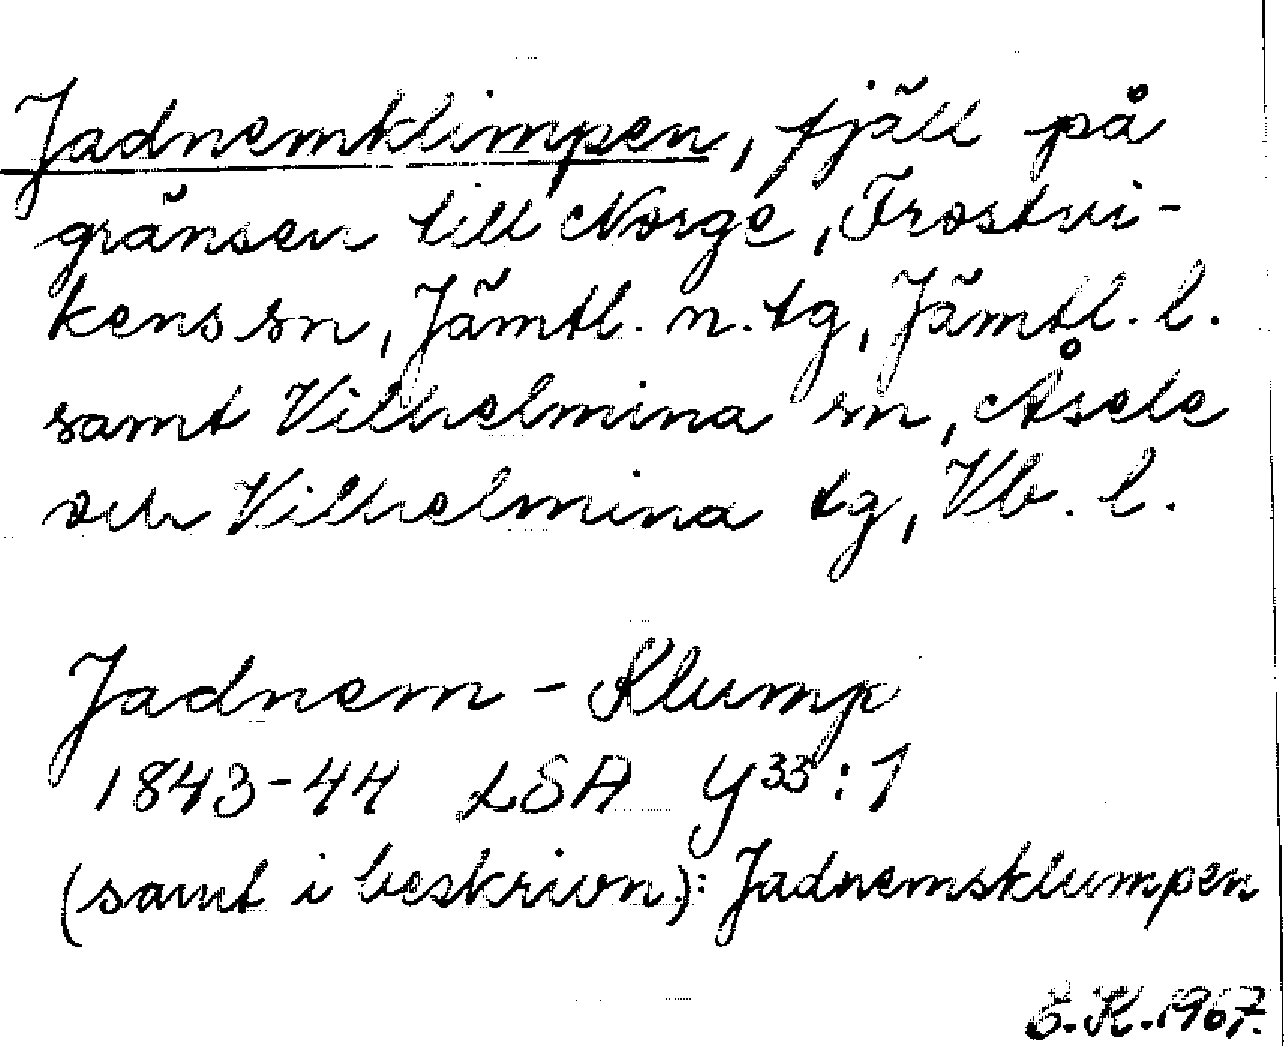 Jadnemklimpen, fjäll på
gränsen till Norge, Frostvi-
kens sn, Jämtl. n. tg, Jämtl. l.
samt Vilhelmina sn, Åsele
och Vilhelmina tg, Vb. l.
Jadnem-Klump
1843-44 LSA Y33:1
(samt i beskrivn.): Jadnemsklumpen
S.K. 1967.